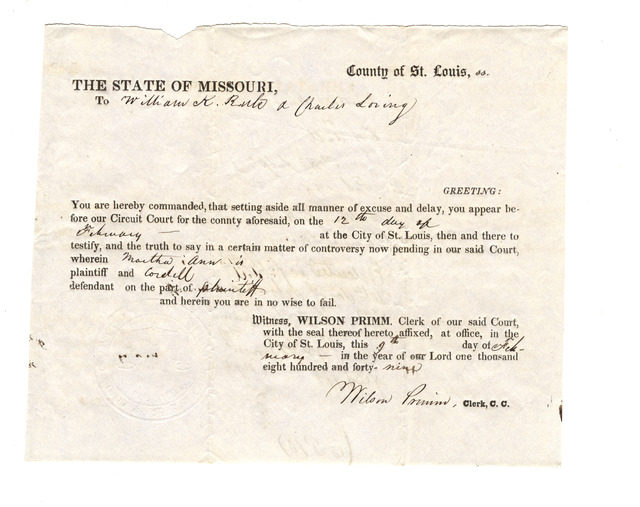 County of St. Louis, ss.
THE STATE OF MISSOURI,
To William K. & Charles Loring
GREETING:
You are hereby commanded, that setting aside all manner of excuse and delay, you appear be-
fore our Circuit Court for the county aforesaid, on the 12th day of
February — at the City of St. Louis, then and there to
testify, and the truth to say in a certain matter of controversy now pending in our said Court,
wherein Martha Ann is
plaintiff and Cordell is
defendant on the part of plaintiff
and herein you are in no wise to fail.
Witness, WILSON PRIMM, Clerk of our said Court,
with the seal thereof hereto affixed, at office, in the
City of St. Louis, this 9th day of Feb-
ruary — in the year of our Lord one thousand
eight hundred and forty-nine
Wilson Primm, Clerk, C. C.